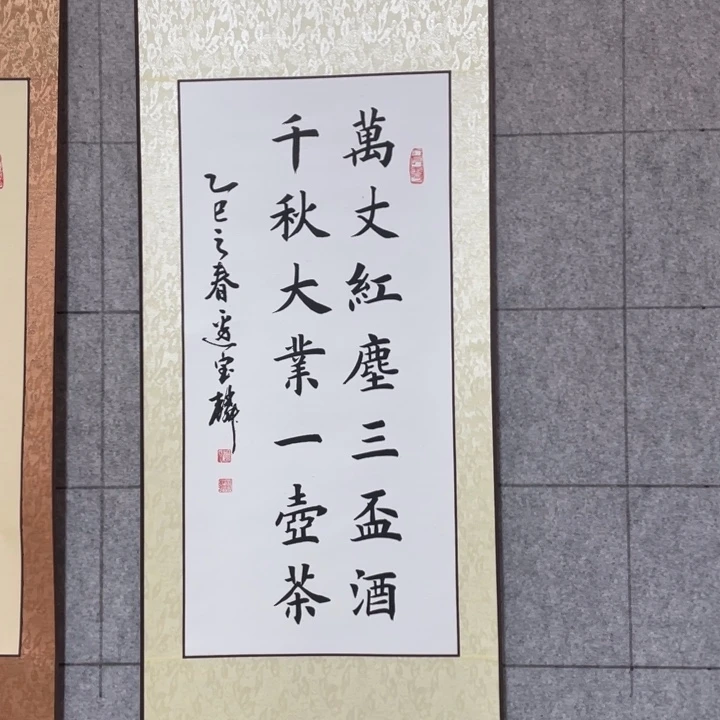 萬丈紅塵三盃酒
千秋大業一壺茶
乙巳之春邊宝麟